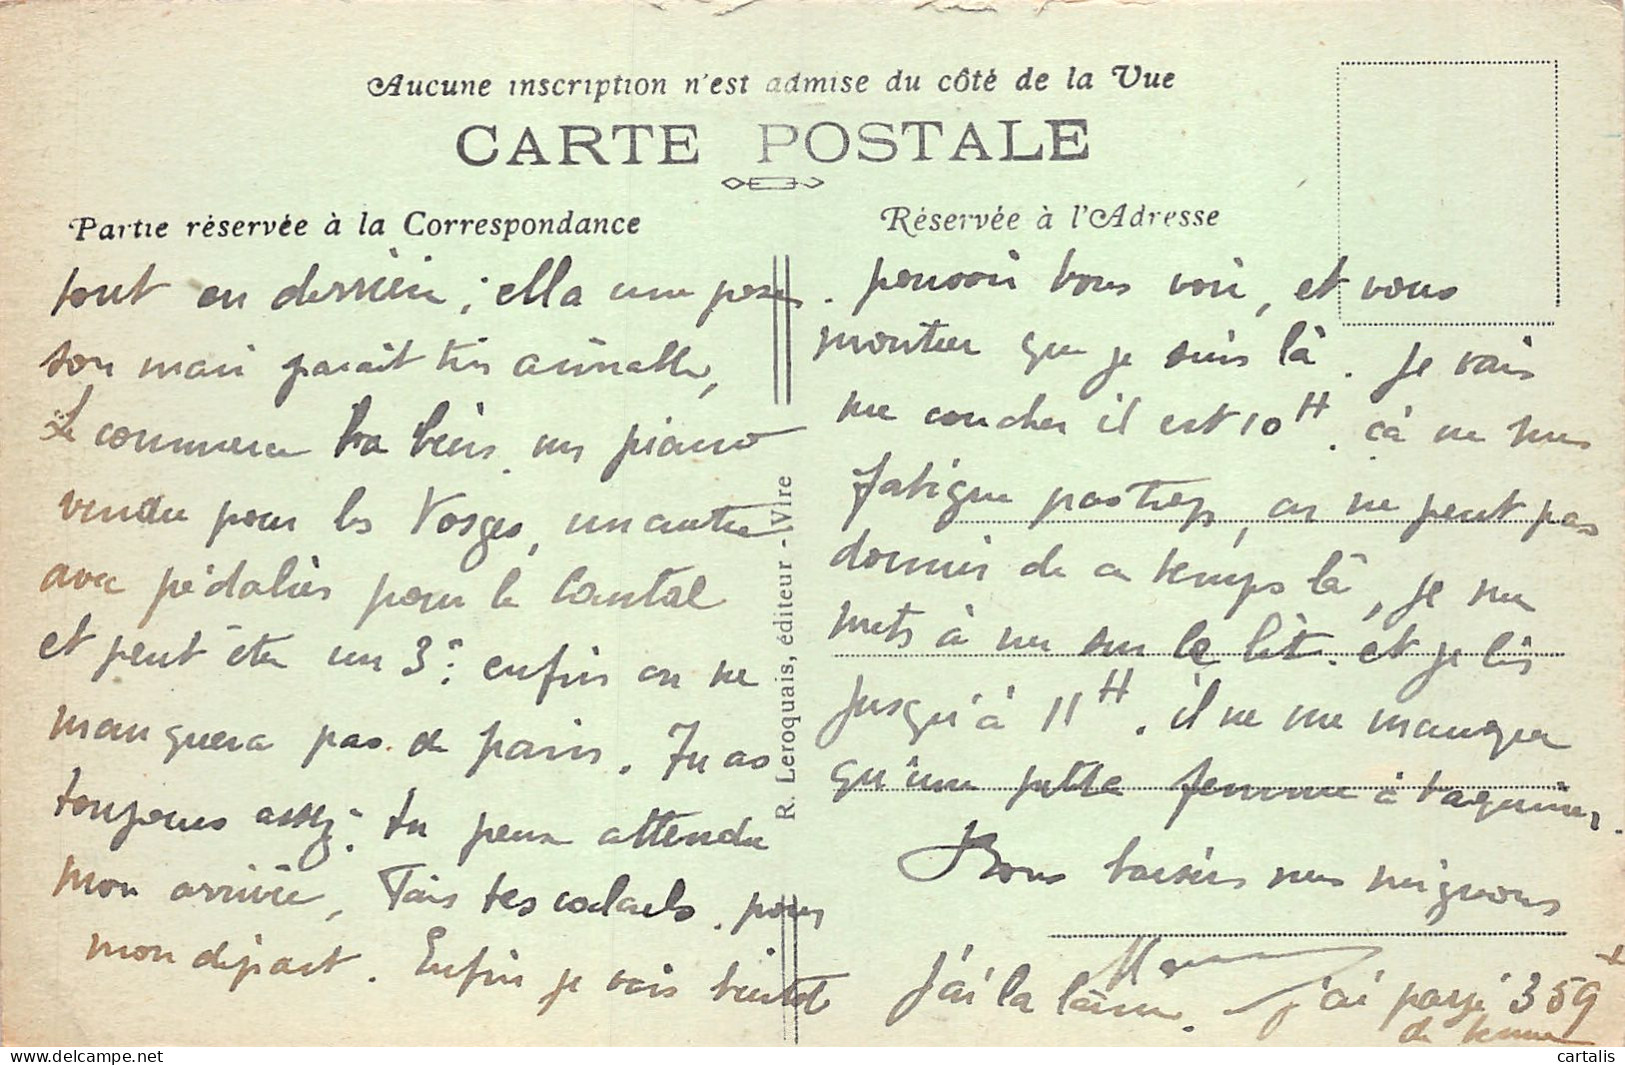 Aucune inscription n'est admise du côté de la Vue
CARTE POSTALE
Partie réservée à la Correspondance
Réservée à l'Adresse
tout en derrière, ; ella une
son mari parait très aimable,
Le commerce va bien. un piano
vendu pour les Vosges, un autre
avec pédalier pour le Cantal
et peut être un 3e: enfin on ne
manquera pas de pain. Tu as
toujours assez. tu peux attendre
mon arrivée, Fais tes calculs. pour
mon départ. Enfin je vais bientôt
R. Leroquais, éditeur - Wire
pouvoir vous voir, et vous
montrer que je suis là. Je vais
me coucher il est 10H. çà ne me
fatigue pas trop, on ne peut pas
dormir de ce temps là, je me
mets à nu sur le lit. et je lis
jusqu'à 11H. il ne me manque
qu'une petite femme à taquiner.
Bons baisers mes mignons
J'ai la lame. j'ai payé 359
de
cartalis